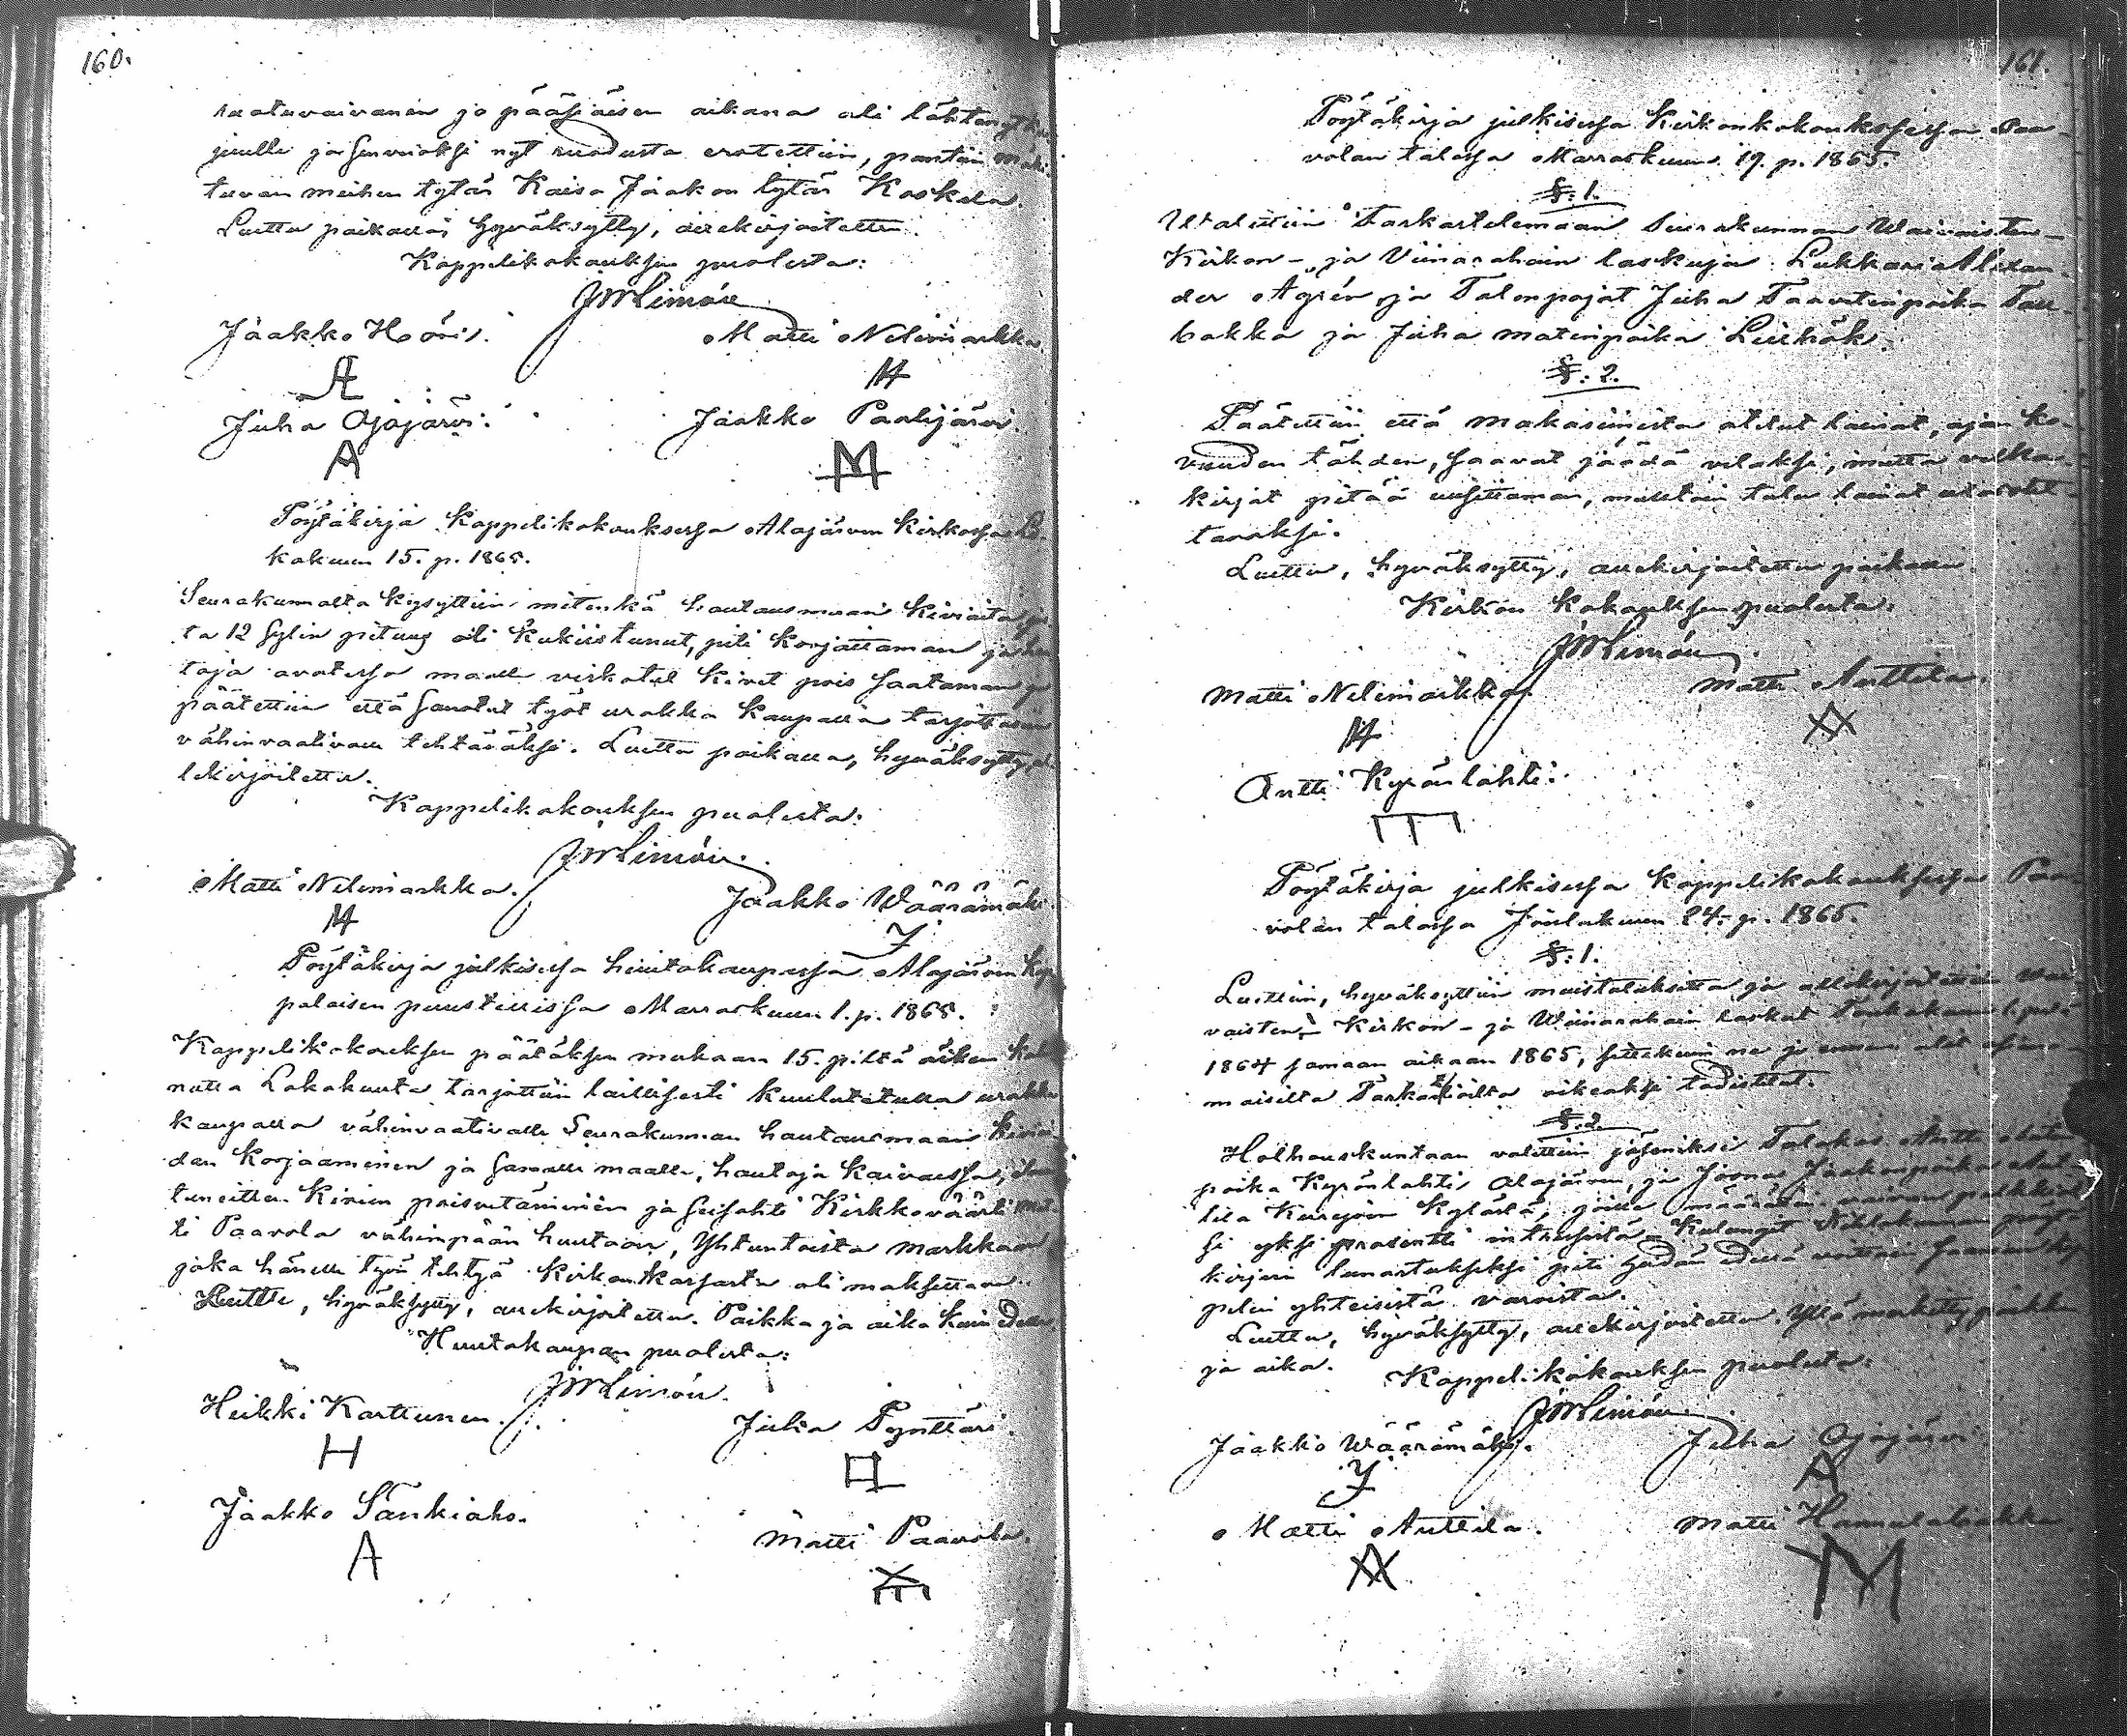 160.
ruotuvaivanen jo pääsiäisen aikana oli
juulle ja senvuoksi nyt ruodusta erotettiin, pantiin
tuvan meihen tytär Kaisa Jaakon tytär Koskela.
Luettu paikalla, hyväksytty, allekirjoitettu.
Kappelikokouksen puolesta:
JWLimón
Jaakko Hoóris. Matti Nelimarkka.
Juha Ojajärvi. Jaakko Paalijärvi.
A M
Pöytäkirja Kappelikokouksessa Alajärven Kirkossa Lo-
kakuun 15. p. 1865.
Seurakunnalta kysyttiin mitenkä hautausmaan kiviaita
ta 12 sylin pituus oli kukiistunut, piti korjattaman
toja avatessa maalle viskatut kivet pois saataman
päätettiin että sanotut työt urakka kaupalla tarjottaisiin
vähinvaativalle tehtäväksi. Luettu paikalla, hyväksytty, al-
lekirjoitettu.
Kappelikokouksen puolesta:
JWLimón.
Matti Nelimarkka. Jaakko Wäärämäki.
Pöytäkirja julkisessa huutokaupassa Alajärven Kap-
palaisen puustellissa Marraskuun 1. p. 1865.
Kappelikokouksen päätöksen mukaan 15. piltä
nutta Lokakuuta tarjottiin laillisesti kuulutetulla urakka
kaupalla vähinvaativalle Seurakunnan hautausmaan kiviai-
dan korjaaminen ja samalle maalle, hautoja kaivaessa,
tuneitten kivien poisvetäminen ja seisahti Kirkkoväärti Mat-
ti Paavola vähimpään huutoon, Yhtentoista markkaan
joka hänelle työn tehtyä kirkonkassasta oli maksettava.
Luettu, hyväksytty, allekirjoitettu. Paikka ja aika kuin edellä.
Huutokaupan puolesta:
JWLimón.
Heikki Karttunen. Juha Pynttäri.
H
Jaakko Sänkiaho. Matti Paavola.
A
161.
Pöytäkirja julkisessa Kirkonkokouksessa Paa-
volan talossa Marraskuun 19. p. 1865.
§. 1.
Walittiin Tarkastelemaan Seurakunnan Waivaisten-
Kirkon- ja Viinarahain laskuja: Lukkari Alexan-
der Agrén ja Talonpojat Juha Taavetinpoika Tau-
bakka ja Juha Matinpoika Luikók.
§. 2.
Päätettiin että makasiinista otetut lainat, ajan ko-
vuuden tähden, saavat jäädä velaksi, mutta velka-
kirjat pitää uusittaman, muutoin tulee lainat ulosotet-
tavaksi.
Luettu, hyväksytty, allekirjoitettu paikalla.
Kirkon Kokouksen puolesta:
JWLimón
Matti Nelimarkka. Matti Anttila.
Antti Kyrönlahti.
Pöytäkirja julkisessa Kappelikokouksessa Paa-
volan talossa Joulukuun 24. p. 1865.
§. 1.
Luettiin, hyväksyttiin muistutuksitta ja allekirjoitettiin Wai-
vaisten- Kirkon- ja Wiinarahain laskut Toukokuun 1 p:
1864 samaan aikaan 1865, sittekuin ne jo ennen olit
maisilta Tarkastjoilta oikeaksi todistetut.
§. 2.
Holhouskuntaan valittiin jäseniksi Talokas Antti
poika Kyrönlahti Alajärven, ja Joonas Jaakonpoika
tila Kurejoen Kylästä, joille määrättiin vaivan palkkiok-
si yksi prosentti intressistä.
kirjain lunastukseksi piti
pelin yhteisistä varoista.
Luettu, hyväksytty, allekirjoitettu. Yllä merkitty paikka
ja aika.
Kappelikokouksen puolesta:
JWLimón.
Jaakko Wäärämäki. Juha Ojajärvi.
A
Matti Anttila. Matti Hamulabakka.
M